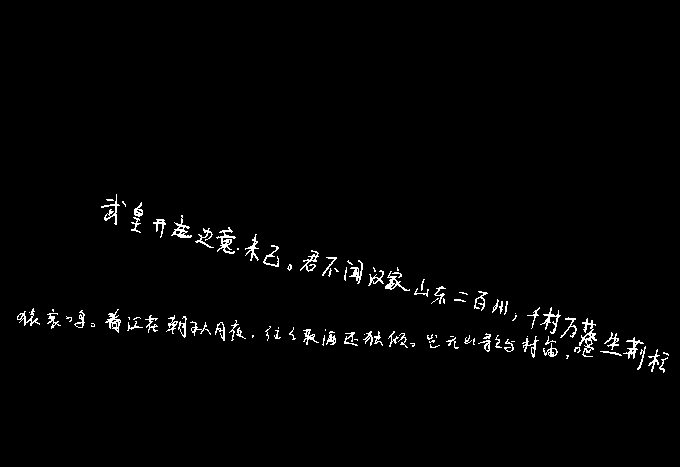 武皇开边意未已。君不闻汉家山东二百州，千村万落生荆杞
猿哀鸣。春江花朝秋月夜，往往取酒还独倾。岂无山歌与村笛，